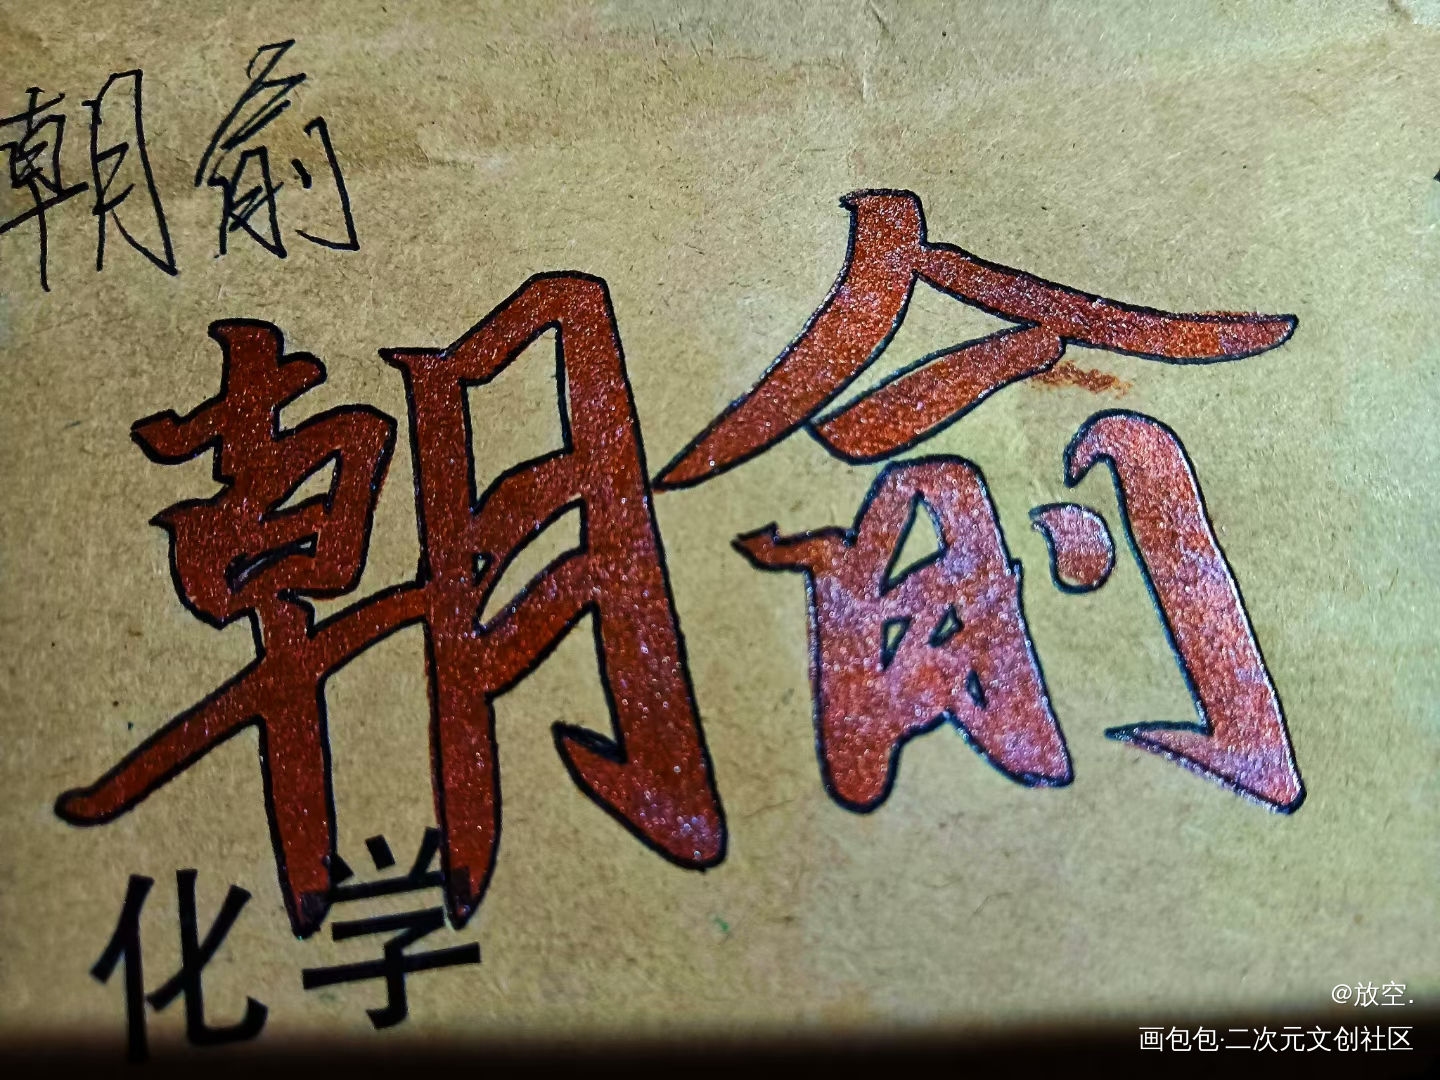 朝俞
朝俞
化学
@放空.
画包包·二次元文创社区